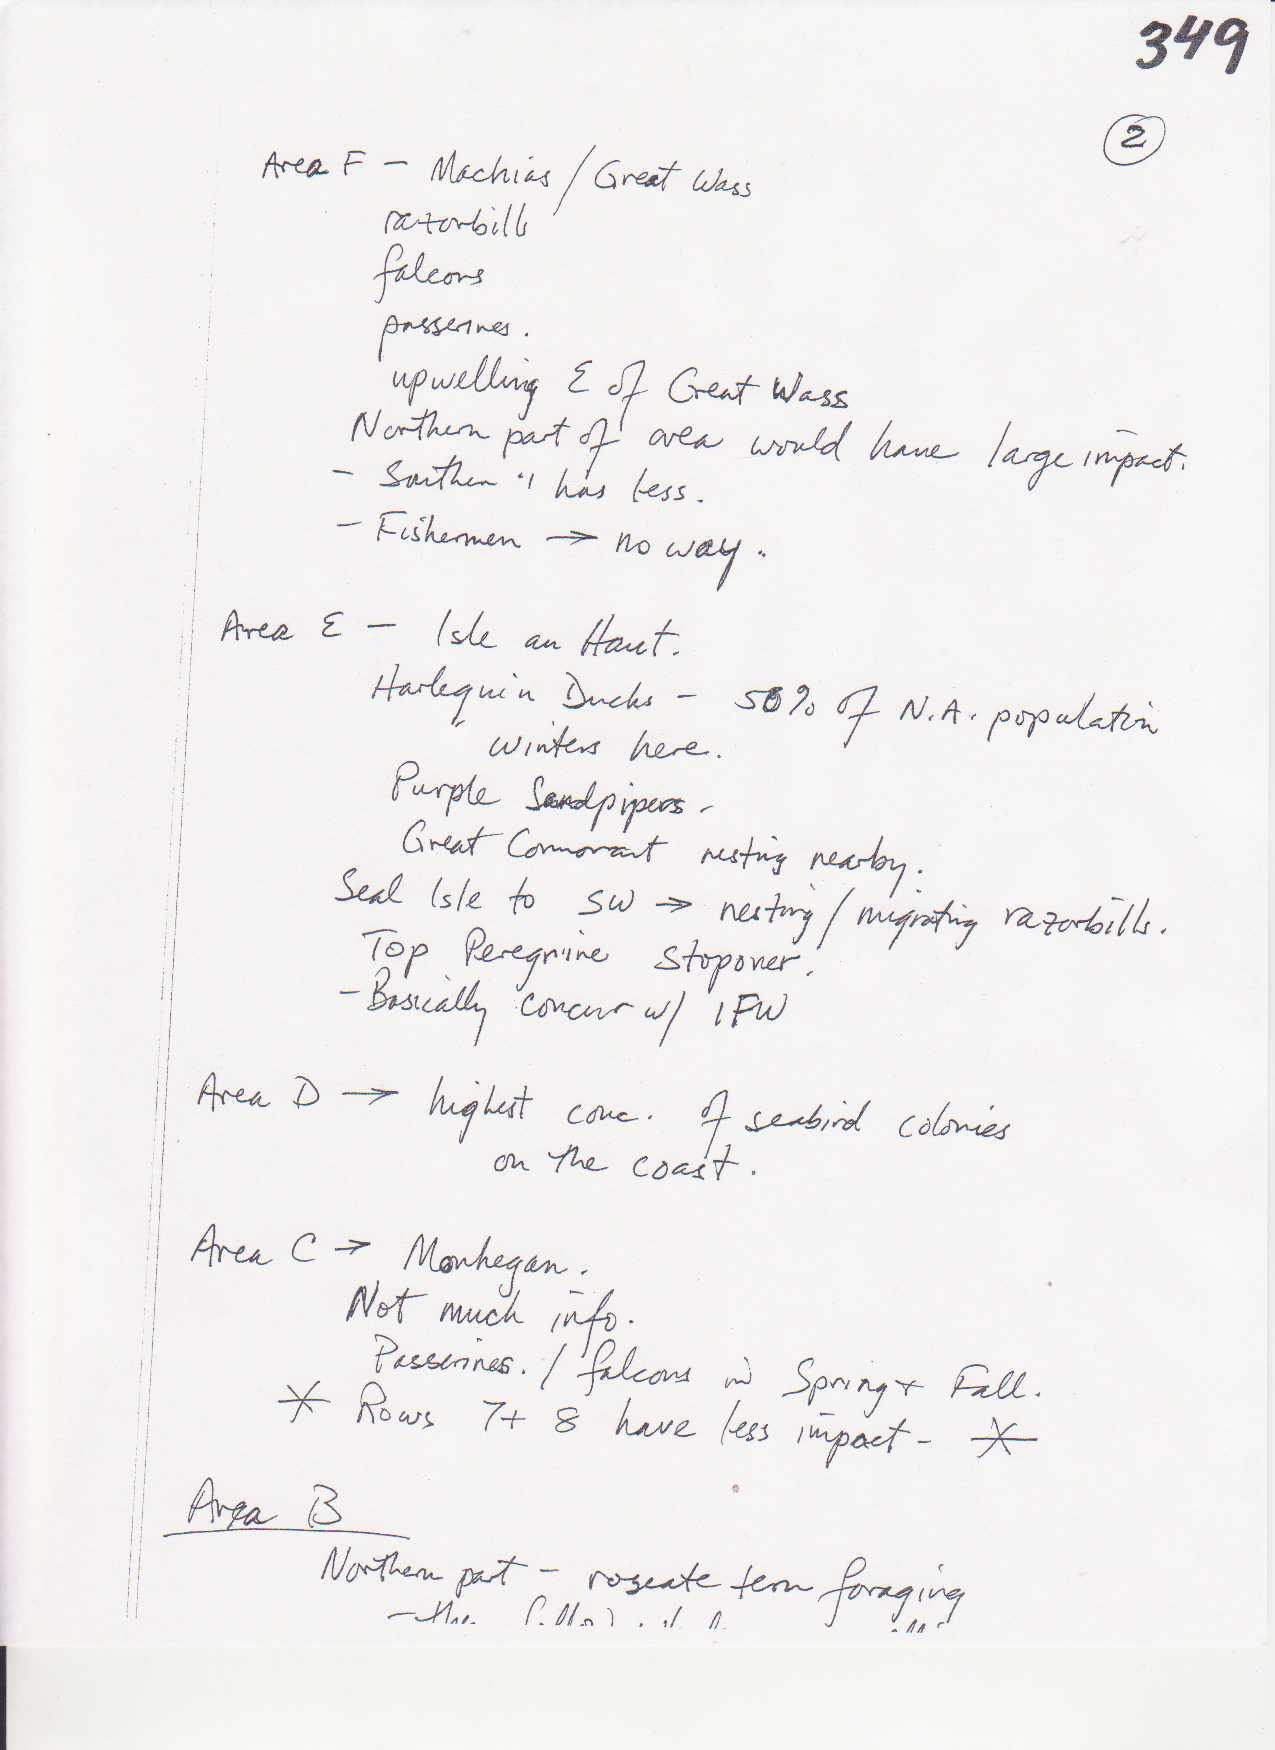 349
2
Area F – Machias / Great Wass
razorbills
falcons
passerines.
upwelling E of Great Wass
Northern part of area would have large impact.
- Southern " has less.
- Fishermen → no way.
Area E – Isle au Haut.
Harlequin Ducks - 50% of N.A. population
winters here.
Purple Sandpipers -
Great Cormorant nesting nearby.
Seal Isle to SW → nesting / migrating razorbills.
Top Peregrine stopover.
- Basically concur w/ IFW
Area D → highest conc. of seabird colonies
on the coast.
Area C → Monhegan.
Not much info.
Passerines. / falcons in Spring + Fall.
* Rows 7+ 8 have less impact - *
Area B
Northern part - roseate tern foraging